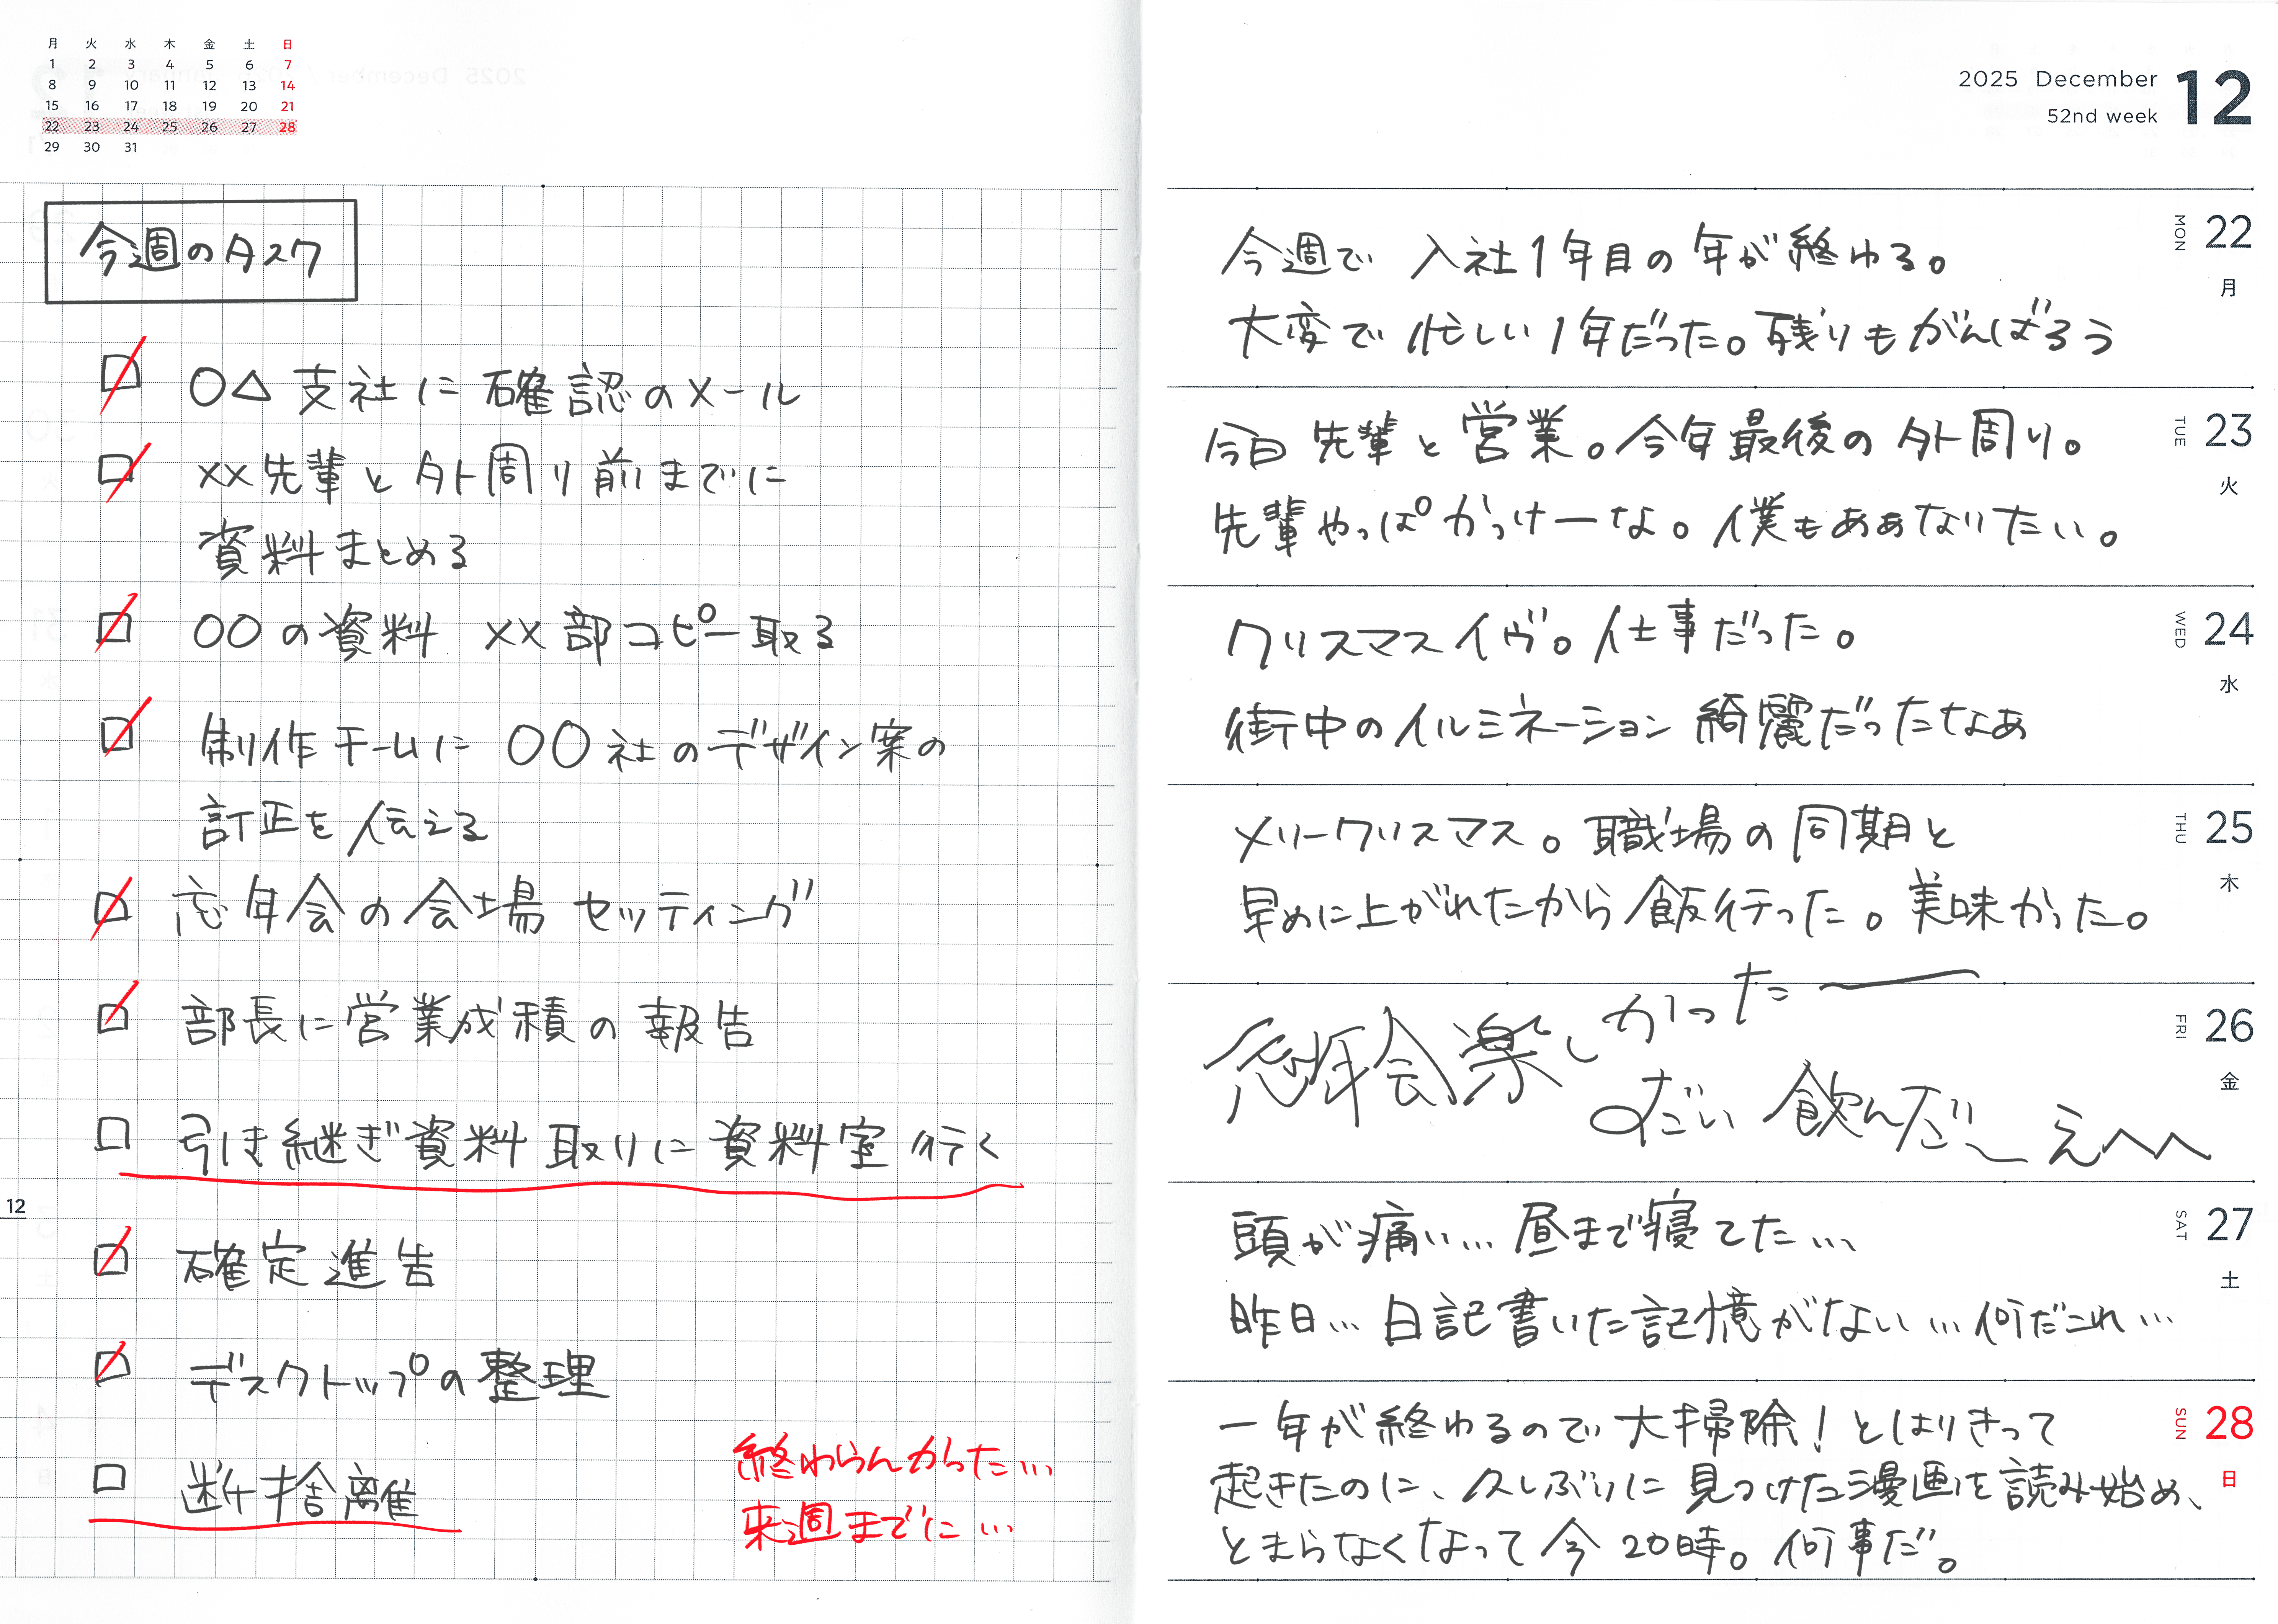 月 火 水 木 金 土 日
1 2 3 4 5 6 7
8 9 10 11 12 13 14
15 16 17 18 19 20 21
22 23 24 25 26 27 28
29 30 31
今週のタスク
○△支社に確認のメール
××先輩と外周り前までに
資料まとめる
○○の資料 ××部コピー取る
制作チームに○○社のデザイン案の
訂正を伝える
忘年会の会場セッティング
部長に営業成積の報告
引き継ぎ資料取りに資料室行く
12
確定進告
デスクトップの整理
断捨離
終わらんかった…
来週までに…
2025 December 12
52nd week
22 MON 月
今週で入社1年目の年が終わる。
大変で忙しい1年だった。残りもがんばろう
23 TUE 火
今日先輩と営業。今年最後の外周り。
先輩やっぱかっけーな。僕もああなりたい。
24 WED 水
クリスマスイヴ。仕事だった。
街中のイルミネーション綺麗だったなあ
25 THU 木
メリークリスマス。職場の同期と
早めに上がれたから飯行った。美味かった。
26 FRI 金
忘年会楽しかったー
飲んだ〜 えへへ
27 SAT 土
頭が痛い…昼まで寝てた…
昨日…日記書いた記憶がない…何だこれ…
28 SUN 日
一年が終わるので大掃除!とはりきって
起きたのに、久しぶりに見つけた漫画を読み始め、
とまらなくなって今20時。何事だ。